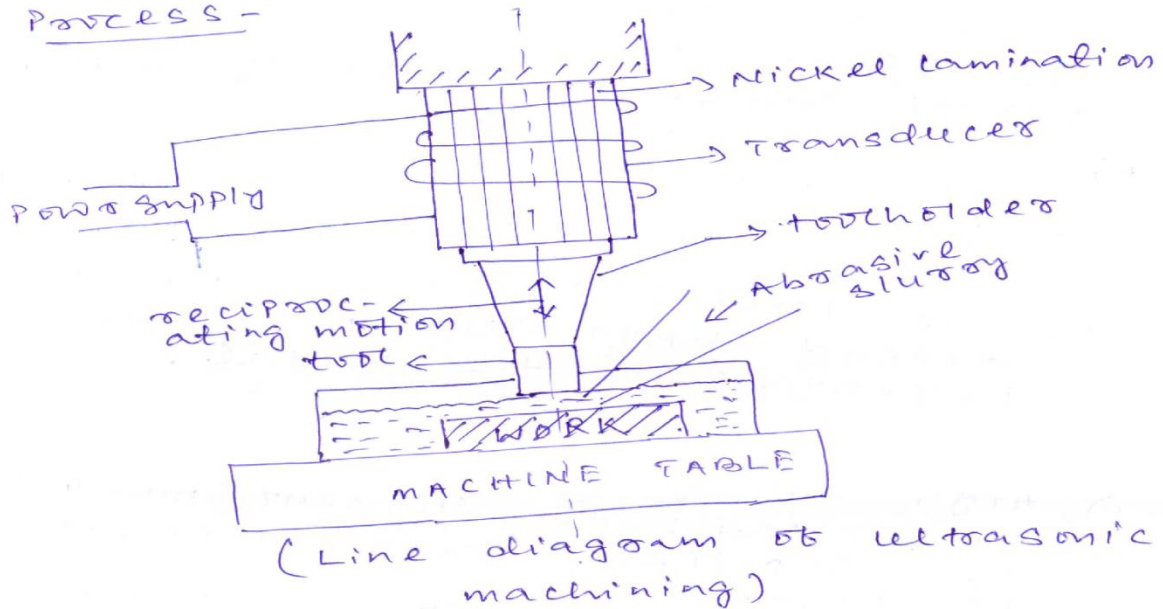 Process -
Nickel Lamination
Transducer
Power Supply
toolholder
Abrasive
slurry
reciproc-
ating motion
tool
WORK
MACHINE TABLE
(Line diagram of ultrasonic
machining)